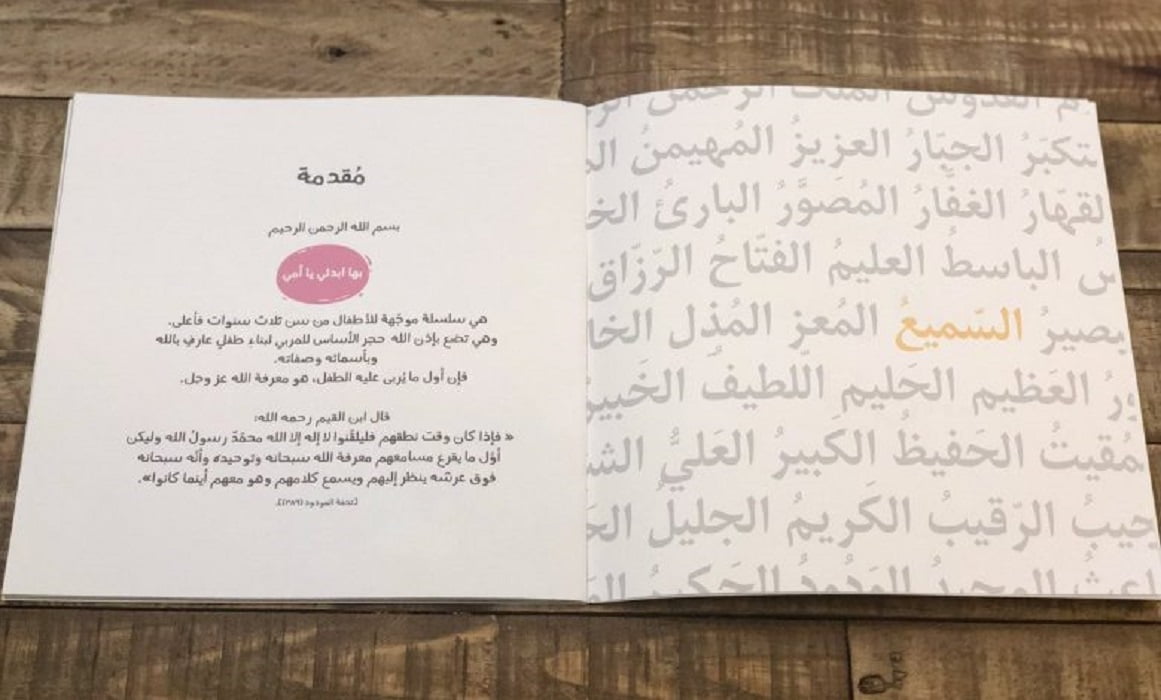 مُقدمة
بسم الله الرحمن الرحيم
بها ابدئي يا أمي
هي سلسلة موجّهة للأطفال من سن ثلاث سنوات فأعلى.
وهي تضع بإذن الله حجر الأساس للمربي لبناء طفلٍ عارفٍ بالله
وبأسمائه وصفاته.
فإن أول ما يُربى عليه الطفل، هو معرفة الله عز وجل.
قال ابن القيم رحمه الله:
« فإذا كان وقت نطقهم فليلقّنوا لا إله إلا الله محمّدٌ رسولُ الله وليكن
أوّل ما يقرع مسامعهم معرفة الله سبحانه وتوحيده وأنّه سبحانه
فوق عرشه ينظر إليهم ويسمع كلامهم وهو معهم أينما كانوا».
[تحفة المودود (٣٨٩)].
القدوس الملك الرحمن
الجبّارُ العزيزُ المُهيمنُ
الغفّارُ المُصوَّرُ البارئُ
الباسطُ العليمُ الفتّاحُ الرّزّاق
بصيرُ السّميعُ المُعز المُذل
العَظيم الحَليم اللّطيفُ الخَبيرُ
مُقيتُ الحَفيظُ الكَبيرُ العَليُّ
الرّقيبُ الكَريمُ الجليلُ
الوَدُودُ الحَكيمُ